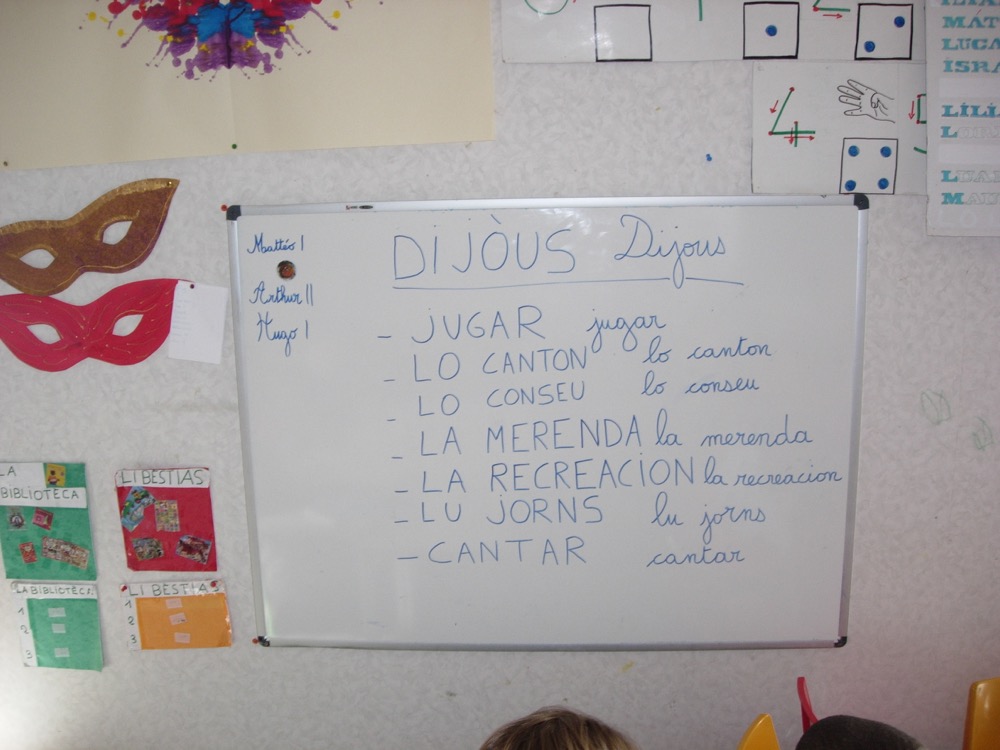 MÁT
LUCA
ISRA
LÍLI
4
Mattéo I
Arthur II
Hugo I
DIJÒUS Dijous
- JUGAR jugar
- LO CANTON lo canton
- LO CONSEU lo conseu
- LA MERENDA la merenda
- LA RECREACION la recreacion
- LU JORNS lu jorns
- CANTAR cantar
LA
BIBLIOTECA
LI BESTIAS
LA BIBLIOTECA
1
2
3
LI BESTIAS
1
2
3